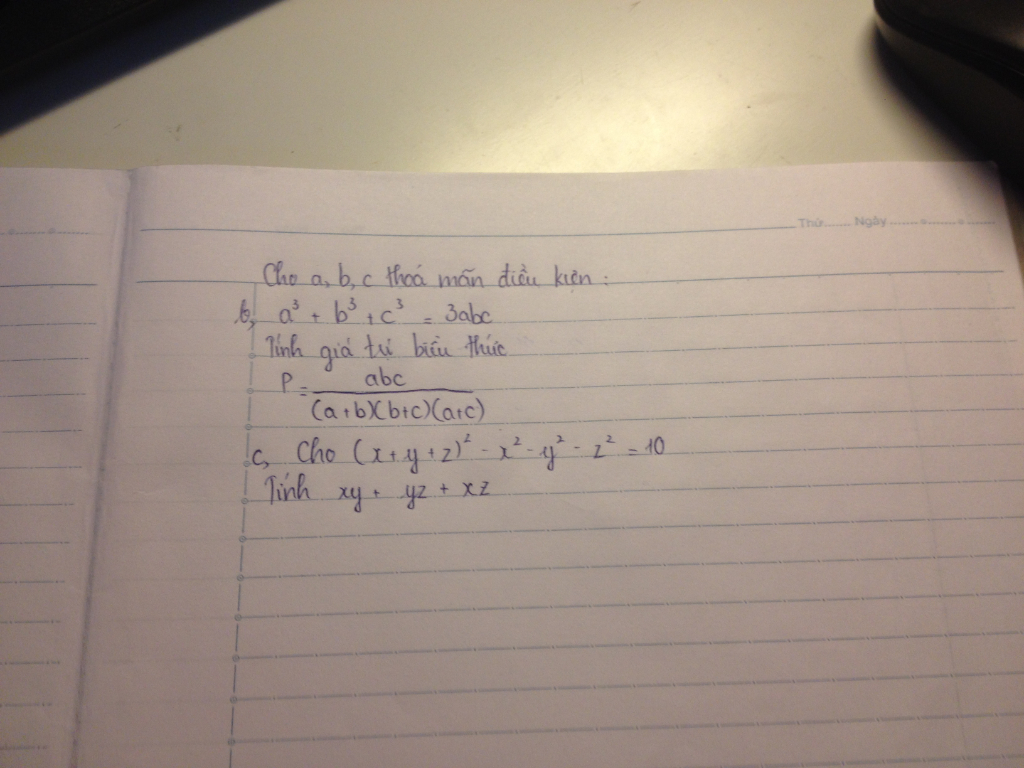 Thứ....... Ngày
Cho a, b, c thoả mãn điều kiện :
b, a³ + b³ + c³ = 3abc
Tính giá trị biểu thức
P = abc / (a+b)(b+c)(a+c)
c, Cho (x+y+z)² - x² - y² - z² = 10
Tính xy + yz + xz